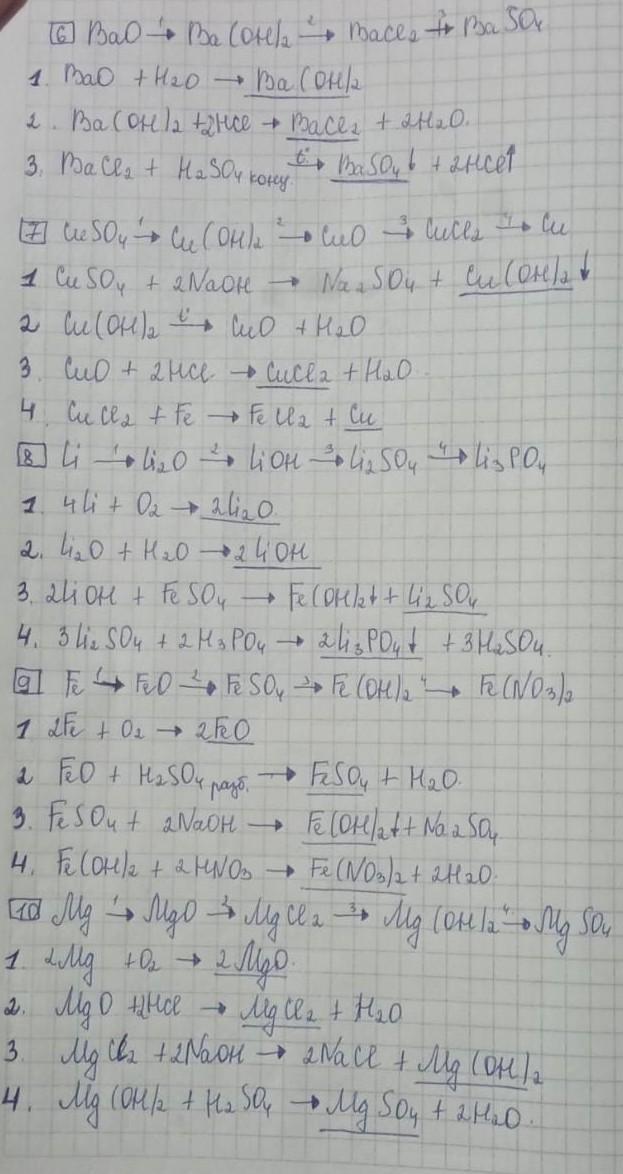 6 BaO →¹ Ba(OH)₂ →² BaCl₂ →³ BaSO₄
1. BaO + H₂O → Ba(OH)₂
2. Ba(OH)₂ + 2HCl → BaCl₂ + 2H₂O.
3. BaCl₂ + H₂SO₄ конц. →ᵗ° BaSO₄↓ + 2HCl↑
7 CuSO₄ →¹ Cu(OH)₂ →² CuO →³ CuCl₂ →⁴ Cu
1 CuSO₄ + 2NaOH → Na₂SO₄ + Cu(OH)₂↓
2 Cu(OH)₂ →ᵗ° CuO + H₂O
3. CuO + 2HCl → CuCl₂ + H₂O.
4. CuCl₂ + Fe → FeCl₂ + Cu
8 Li →¹ Li₂O →² LiOH →³ Li₂SO₄ →⁴ Li₃PO₄
1. 4Li + O₂ → 2Li₂O.
2. Li₂O + H₂O → 2LiOH
3. 2LiOH + FeSO₄ → Fe(OH)₂↓ + Li₂SO₄
4. 3Li₂SO₄ + 2H₃PO₄ → 2Li₃PO₄↓ + 3H₂SO₄.
9 Fe →¹ FeO →² FeSO₄ →³ Fe(OH)₂ →⁴ Fe(NO₃)₂
1 2Fe + O₂ → 2FeO
2 FeO + H₂SO₄ разб. → FeSO₄ + H₂O.
3. FeSO₄ + 2NaOH → Fe(OH)₂↓ + Na₂SO₄
4. Fe(OH)₂ + 2HNO₃ → Fe(NO₃)₂ + 2H₂O.
10 Mg →¹ MgO →² MgCl₂ →³ Mg(OH)₂ →⁴ MgSO₄
1. 2Mg + O₂ → 2MgO.
2. MgO + 2HCl → MgCl₂ + H₂O
3 MgCl₂ + 2NaOH → 2NaCl + Mg(OH)₂
4. Mg(OH)₂ + H₂SO₄ → MgSO₄ + 2H₂O.